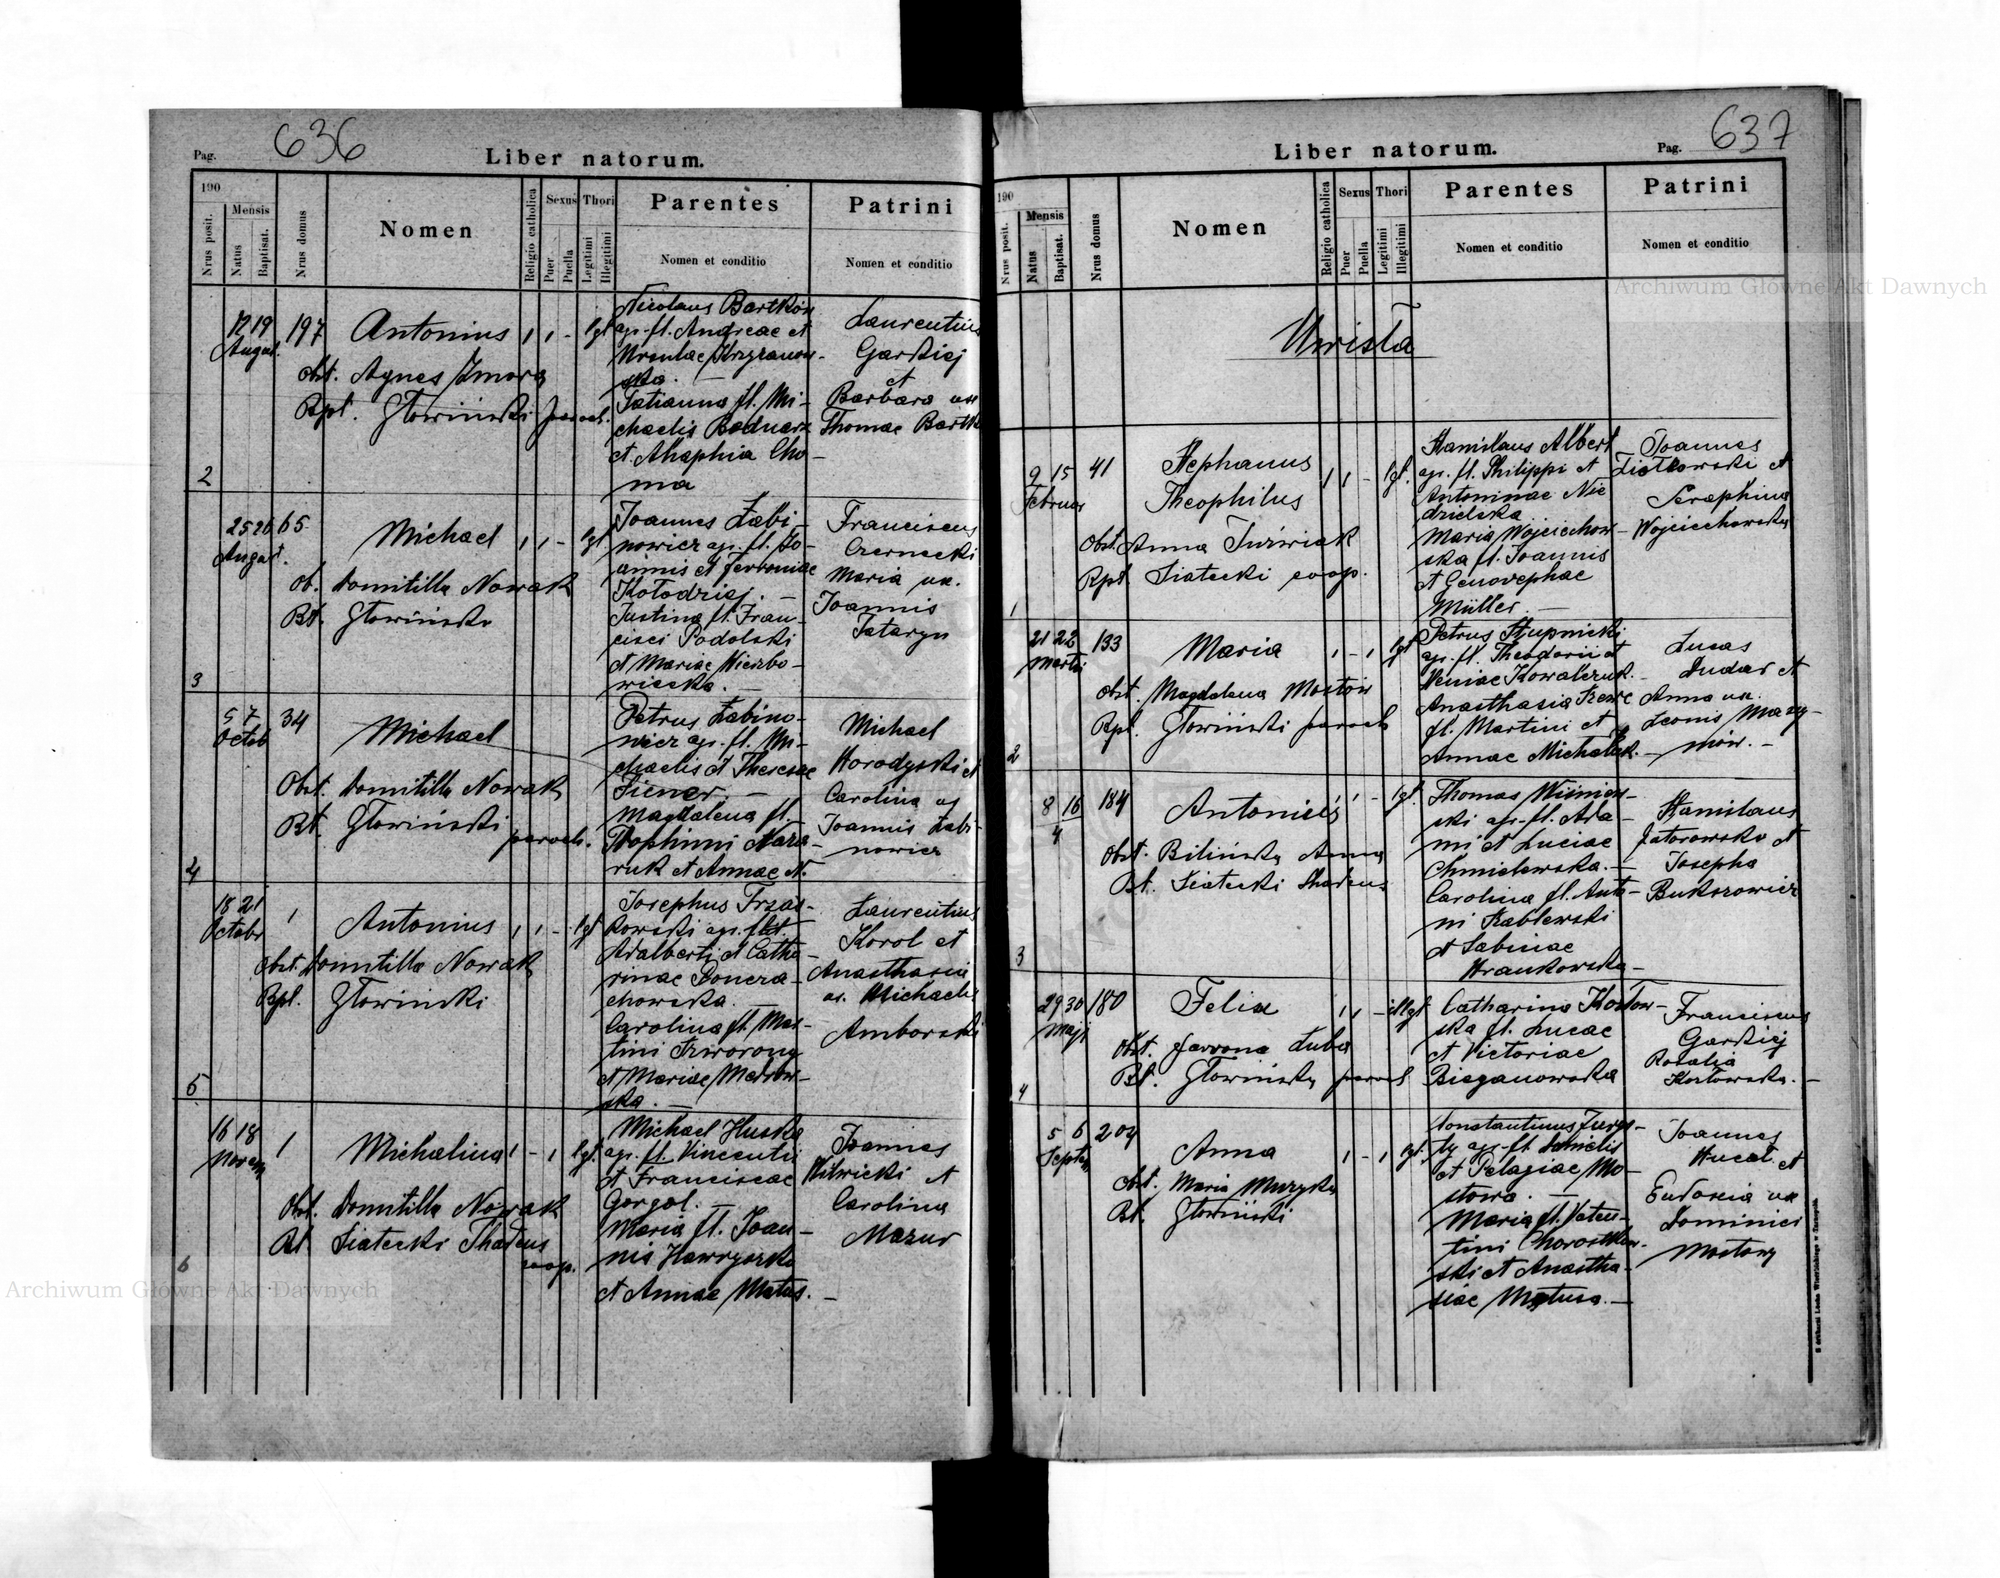 636
Pag.
Liber natorum.
190
Nrus posit.
Mensis
Natus
Baptisat.
Nrus domus
Nomen
Religio catholica
Sexus
Puer
Puella
Thori
Legitimi
Illegitimi
Parentes
Nomen et conditio
Patrini
Nomen et conditio
2
12 19
August.
197
Antonius
obst. Agnes Zmora
Bpt. Głowiński paroch.
1 1 - lgt
Nicolaus Bartków
agr. fl. Andreae et
Ursulae Krzyżanow-
ska. —
Tatianna fl. Mi-
chaelis Bednarz
et Ahaphia Cho-
ma
Laurentius
Garkiej
et
Barbara ux
Thomae Bartk
3
25 26
August.
65
Michael
ob. Domitilla Nowak
Bt. Głowiński
1 1 - lgt
Joannes Żabi-
nowicz agr. fl. Jo-
annis et Fevroniae
Kołodziej. —
Justina fl. Fran-
cisci Podolski
et Mariae Wierzbo-
wiecka. —
Franciscus
Czernecki
Maria ux.
Joannis
Tataryn
4
5 7
Octob
34
Michael
Obst. Domitilla Nowak
Bt. Głowiński
paroch.
Petrus Żabino-
wicz agr. fl. Mi-
chaelis et Theresae
Siener. —
Magdalena fl.
Trophimi Naza-
ruk et Annae N.
Michael
Horodyski et
Carolina ux
Joannis Żabi-
nowicz
5
18 21
Octobr
1
Antonius
obst. Domitilla Nowak
Bpt. Głowiński
1 1 - lgt
Josephus Trzas-
kowski agr. fl.
Adalberti et Catha-
rinae Doniera-
chowska. —
Carolina fl. Mar-
tini Jaworony
et Mariae Mazow-
ska. —
Laurentius
Korol et
Anasthasia
ux. Michaelis
Amborski
6
16 18
Novem
1
Michalina
Obst. Domitilla Nowak
Bt. Siatecki Thadeus
coop.
1 - 1 lgt.
Michael Huska
agr. fl. Vincentii
et Franciscae
Gorgol. —
Maria fl. Joan-
nis Hawryszko
et Annae Matus. —
Joannes
Wilwicki et
Carolina
Mazur
Liber natorum.
Pag.
637
190
Nrus posit.
Mensis
Natus
Baptisat.
Nrus domus
Nomen
Religio catholica
Sexus
Puer
Puella
Thori
Legitimi
Illegitimi
Parentes
Nomen et conditio
Patrini
Nomen et conditio
Uwisła
1
9 15
Februar
41
Stephanus
Theophilus
Obst. Anna Tuźwiak
Bpt. Siatecki coop.
1 1 - lgt.
Stanislaus Albert
agr. fl. Philippi et
Antoninae Nie
dzielska
Maria Wojciechow-
ska fl. Joannis
et Genovephae
Müller. —
Joannes
Ziółkowski et
Seraphina
Wojciechowska
2
21 22
Martii
133
Maria
obst. Magdalena Mostów
Bpt. Głowiński paroch
1 - 1 lgt
Petrus Stupnicki
agr. fl. Theodorii et
Xeniae Kowalczuk.
Anasthasia
fl. Martini et
Annae Michalak. —
Lucas
Dudar et
Anna ux.
Leonis Mazy-
mów. —
3
8 16
4
184
Antonius
Obst. Bilińska Anna
Bt. Siatecki Thadeus
1 1 - lgt.
Thomas Wiśniew-
ski agr. fl. Ada-
mi et Luciae
Chmielewska. —
Carolina fl. Anto-
ni Szablewski
et Sabinae
Wrankowska —
Stanislaus
Jaborowski et
Josepha
Bukszowicz
4
29 30
Maji
180
Felix
Obst. Javrona Łuba
Bt. Głowiński paroch
1 1 - illgt
Catharina Kostow-
ska fl. Lucae
et Victoriae
Bieganowska
Franciscus
Garkiej
Rosalia
Kostowska. —
5 6
Septem
204
Anna
obst. Maria Muzyka
Bt. Głowiński
1 - 1 lgt.
Constantinus Zarys-
ty agr. fl. Danielis
et Pelagiae Mo-
stowa. —
Maria fl. Valen-
tini Chorostkow-
ski et Anastha-
siae Matusa. —
Joannes
Hucał et
Eudoxia ux
Dominici
Mostowy
Archiwum Główne Akt Dawnych
Archiwum Główne Akt Dawnych